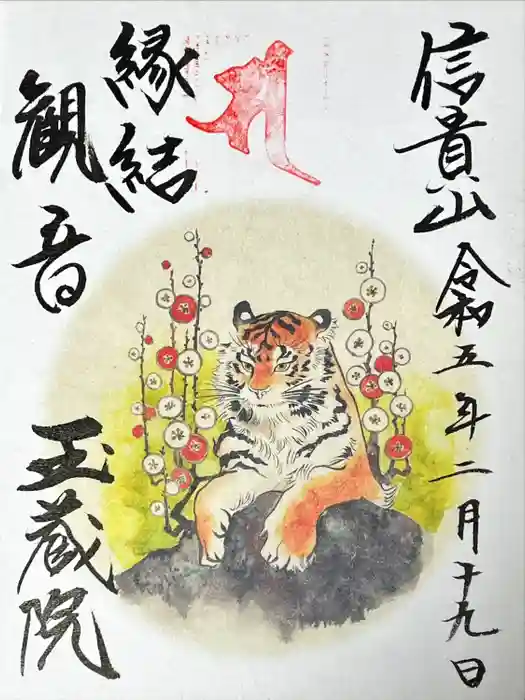 信貴山 令和五年二月十九日
縁結
観音
玉蔵院